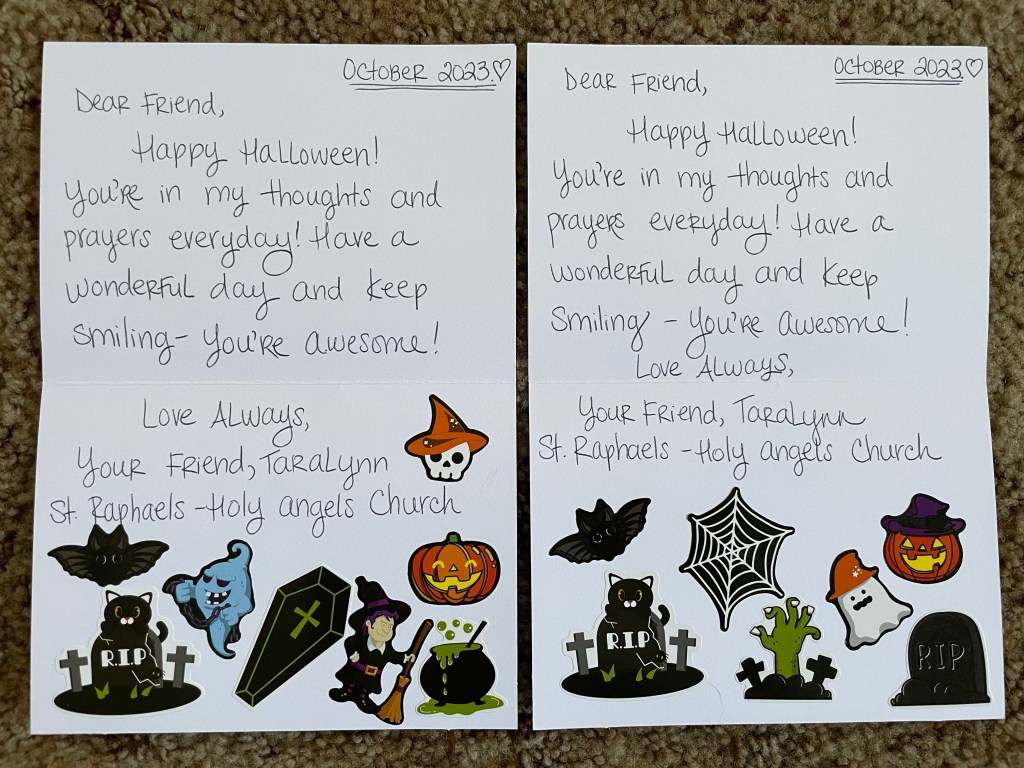 October 2023.♡
Dear Friend,
Happy Halloween!
You're in my thoughts and
prayers everyday! Have a
wonderful day and keep
smiling- You're awesome!
Love Always,
Your Friend, TaraLynn
St. Raphaels -Holy angels Church
R.I.P
October 2023.♡
Dear Friend,
Happy Halloween!
You're in my thoughts and
prayers everyday! Have a
wonderful day and keep
smiling - You're awesome!
Love Always,
Your Friend, TaraLynn
St. Raphaels -Holy angels Church
R.I.P
RIP